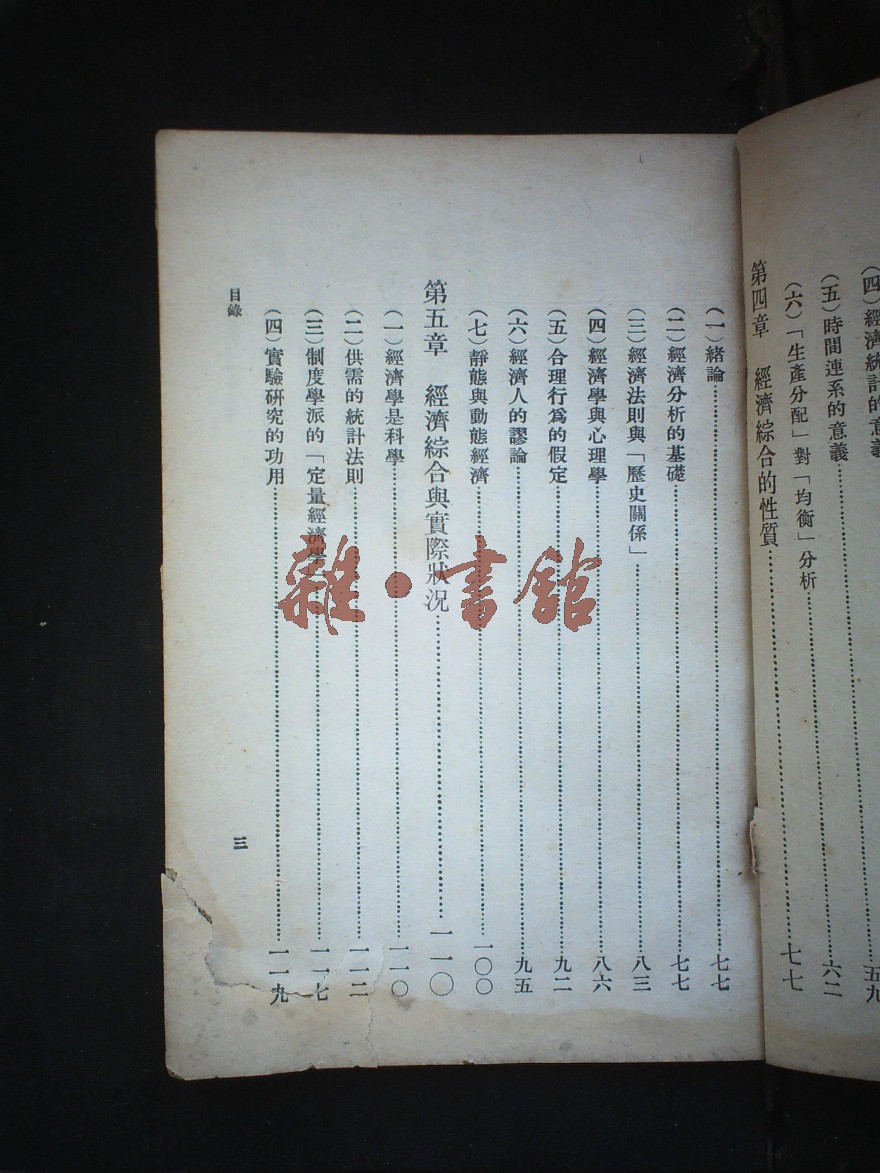 (四)經濟統計的意義……五九
(五)時間連系的意義……六二
(六)「生產分配」對「均衡」分析
第四章 經濟綜合的性質……七七
(一)緒論……七七
(二)經濟分析的基礎……七七
(三)經濟法則與「歷史關係」……八三
(四)經濟學與心理學……八六
(五)合理行爲的假定……九二
(六)經濟人的謬論……九五
(七)靜態與動態經濟……一〇〇
第五章 經濟綜合與實際狀況……一一〇
(一)經濟學是科學……一一〇
(二)供需的統計法則……一一二
(三)制度學派的「定量經濟學」……一一七
(四)實驗研究的功用……一一九
目錄
三
雜·書館